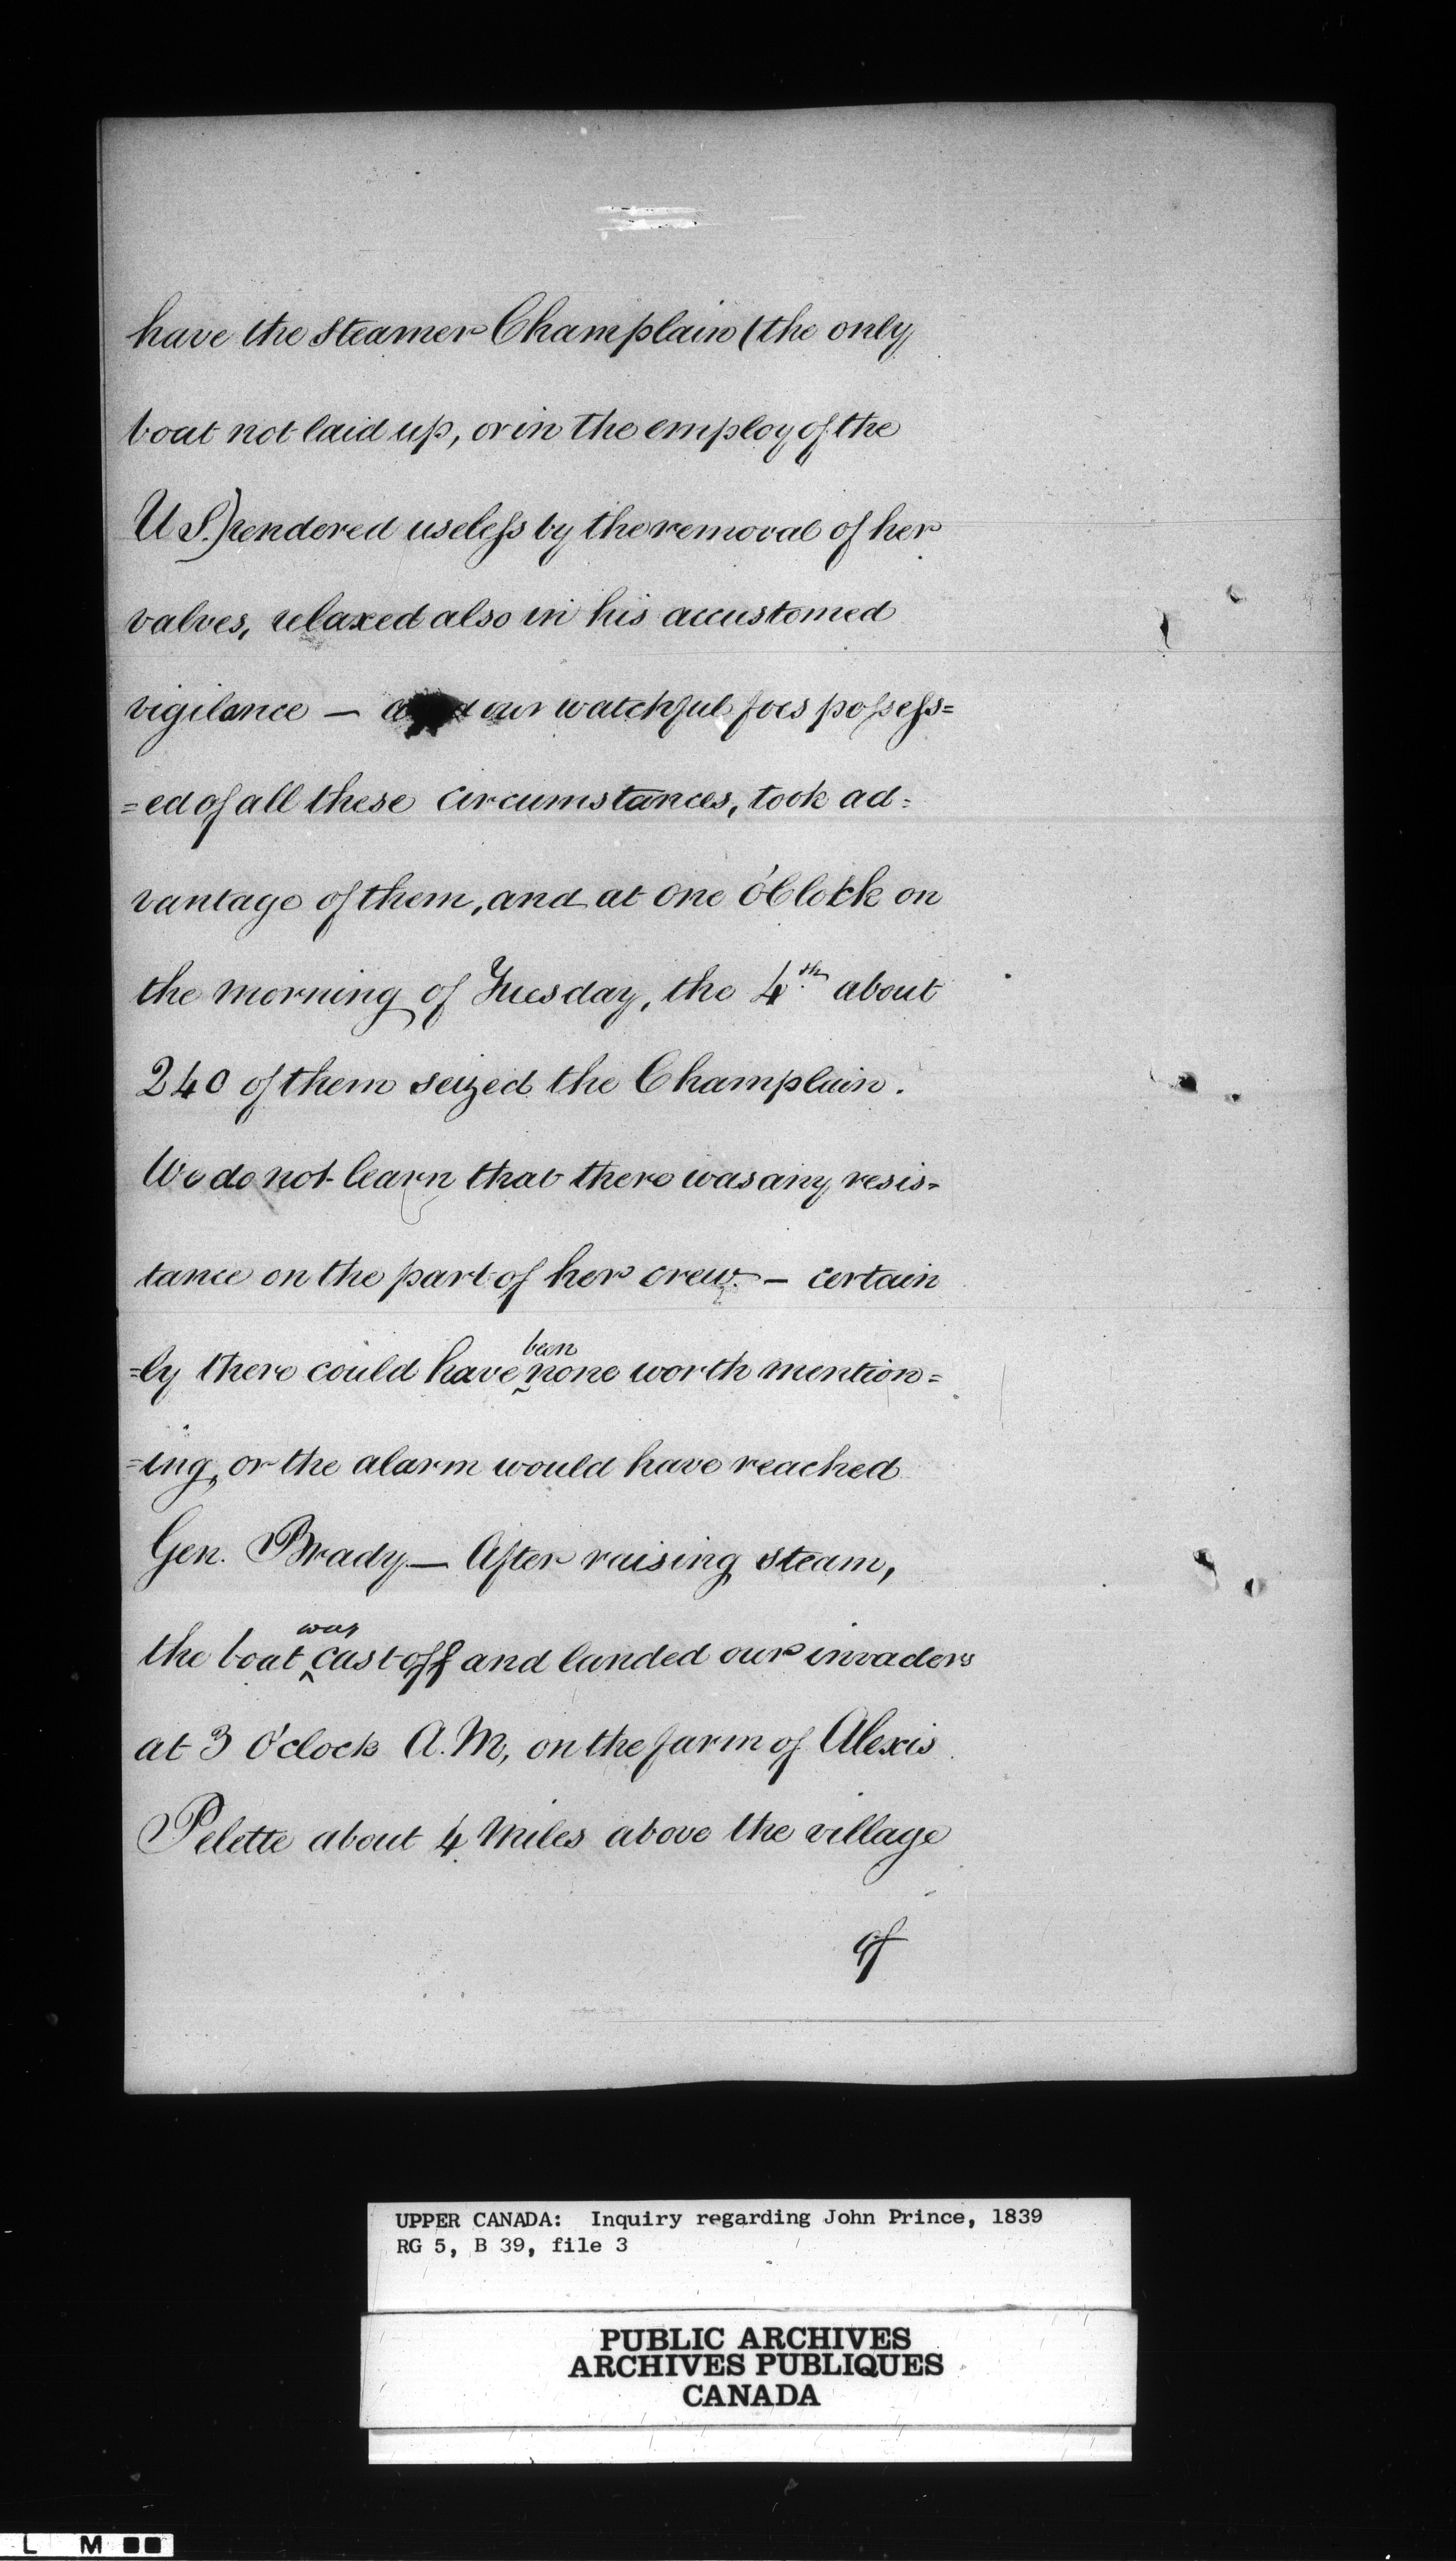 have the steamer Champlain (the only
boat not laid up, or in the employ of the
U S.) rendered useless by the removal of her
valves, relaxed also in his accustomed
vigilance — and our watchful foes possess=
=ed of all these circumstances, took ad=
vantage of them, and at one o'Clock on
the morning of Tuesday, the 4th about
240 of them seized the Champlain.
We do not learn that there was any resis=
tance on the part of her crew. — certain
=ly there could have been none worth mention=
=ing, or the alarm would have reached
Gen. Brady — After raising steam,
the boat was cast off and landed our invaders
at 3 O'clock A.M, on the farm of Alexis
Pelette about 4 Miles above the village
of
UPPER CANADA: Inquiry regarding John Prince, 1839
RG 5, B 39, file 3
PUBLIC ARCHIVES
ARCHIVES PUBLIQUES
CANADA
L M